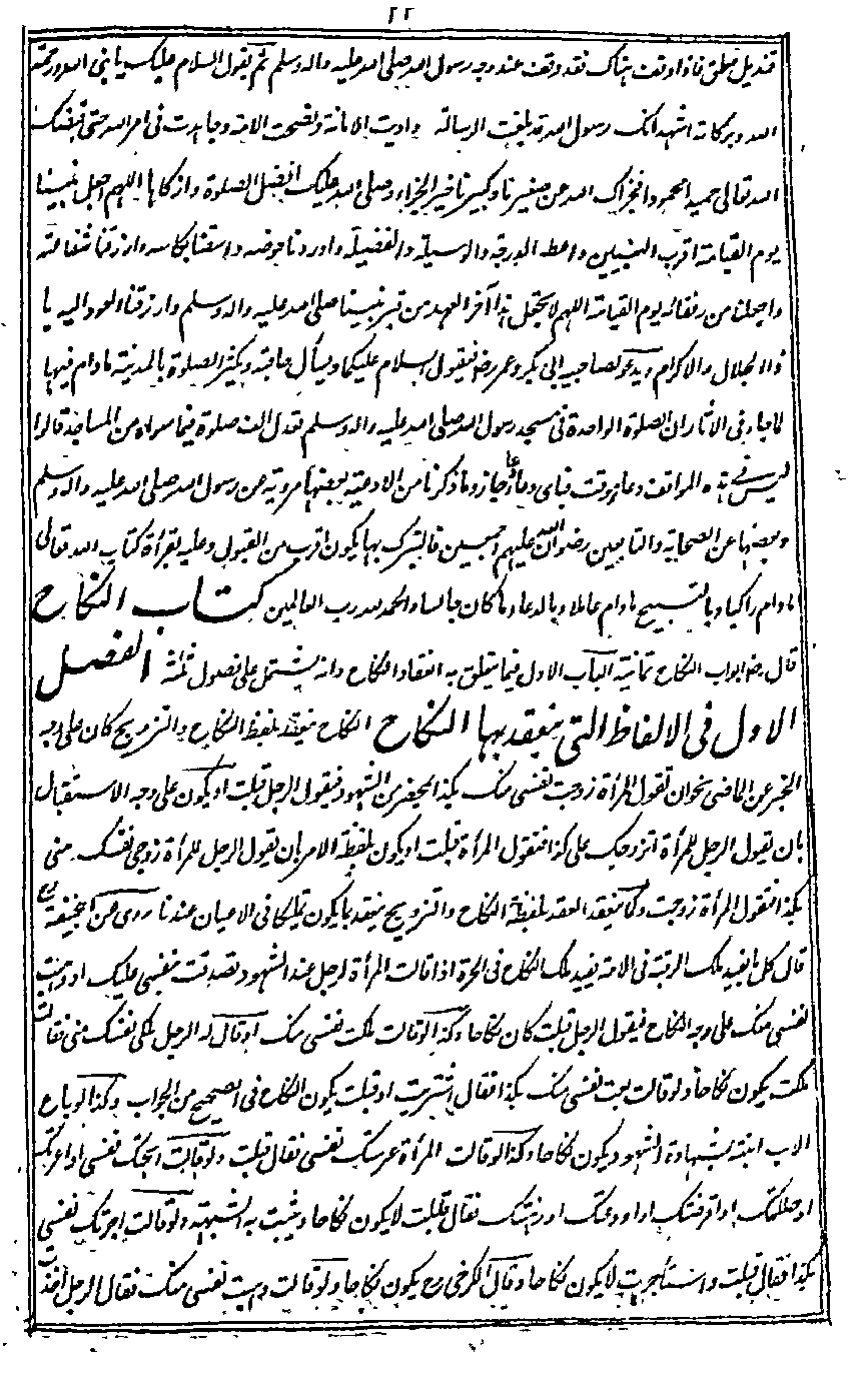 ٢٢
قنديل معلق فاذا وقفت هناك فقد وقفت عند وجه رسول الله صلى الله عليه واله وسلم ثم يقول السلام عليك يا نبى الله ورحمة
الله وبركاته اشهد انك رسول الله قد بلغت الرسالة واديت الامانة ونصحت الامة وجاهدت فى امر الله حتى قبضك
الله تعالى حميدا محمودا فجزاك الله عن صغيرنا وكبيرنا خير الجزاء وصلى الله عليك افضل الصلوة وازكاها اللهم اجعل نبينا
يوم القيامة اقرب النبيين واعطه الدرجة والوسيلة والفضيلة واوردنا حوضه واسقنا بكاسه وارزقنا شفاعته
واجعلنا من رفقائه يوم القيامة اللهم لا تجعل هذا آخر العهد من قبر نبينا صلى الله عليه واله وسلم وارزقنا العود اليه يا
ذا الجلال والاكرام ويدعو لصاحبيه ابى بكر وعمر رض فيقول السلام عليكما ويسأل حاجته ويكثر الصلوة بالمدينة ما دام فيها
لما جاء فى الاثار ان الصلوة الواحدة فى مسجد رسول الله صلى الله عليه واله وسلم تعدل الف صلوة فيما سواه من المساجد قالوا
ليس فى هذه المواقف دعاء موقت فباى دعاء دعا جاز وما ذكرنا من الادعية بعضها مروية عن رسول الله صلى الله عليه واله وسلم
وبعضها عن الصحابة والتابعين رضوان الله عليهم اجمعين فالتبرك بها يكون اقرب من القبول وعليه بقرأة كتاب الله تعالى
ما دام راكبا وبالتسبيح ما دام عاملا وبالدعاء ما كان جالسا والحمد لله رب العالمين كتاب النكاح
قال رض ابواب النكاح ثمانية الباب الاول فيما يتعلق به انعقاد النكاح وانه يشتمل على فصول ثلثة الفصل
الاول فى الالفاظ التى ينعقد بها النكاح النكاح ينعقد بلفظ النكاح والتزويج كان على وجه
الخبر عن الماضى نحو ان تقول المرأة زوجت نفسى منك بكذا بمحضر من الشهود فيقول الرجل قبلت او يكون على وجه الاستقبال
بان يقول الرجل للمرأة اتزوجك على كذا فتقول المرأة قبلت او يكون بلفظة الامر بان يقول الرجل للمرأة زوجى نفسك منى
بكذا فتقول المرأة زوجت وكما ينعقد العقد بلفظة النكاح والتزويج ينعقد بما يكون تمليكا فى الاعيان عندنا روى عن ابى حنيفة رح
قال كل ما يفيد ملك الرقبة فى الامة يفيد ملك النكاح فى الحرة اذا قالت المرأة لرجل عند الشهود تصدقت بنفسى عليك او وهبت
نفسى منك على وجه النكاح فيقول الرجل قبلت كان نكاحا وكذا لو قالت ملكت نفسى منك او قال له الرجل ملكى نفسك منى فقالت
ملكت يكون نكاحا ولو قالت بعت نفسى منك بكذا فقال اشتريت او قبلت يكون النكاح فى الصحيح من الجواب وكذا لو باع
الاب ابنته بشهادة الشهود يكون نكاحا وكذا لو قالت المرأة عرستك نفسى فقال قبلت ولو قالت ابحتك نفسى او اعرتك
او حللتك او اقرضتك او اودعتك او رهنتك فقال قبلت لا يكون نكاحا ويثبت به الشبهة ولو قالت اجرتك نفسى
بكذا فقال قبلت واستأجرت لا يكون نكاحا وقال الكرخى رح يكون نكاحا ولو قالت وهبت نفسى منك فقال الرجل اخذت